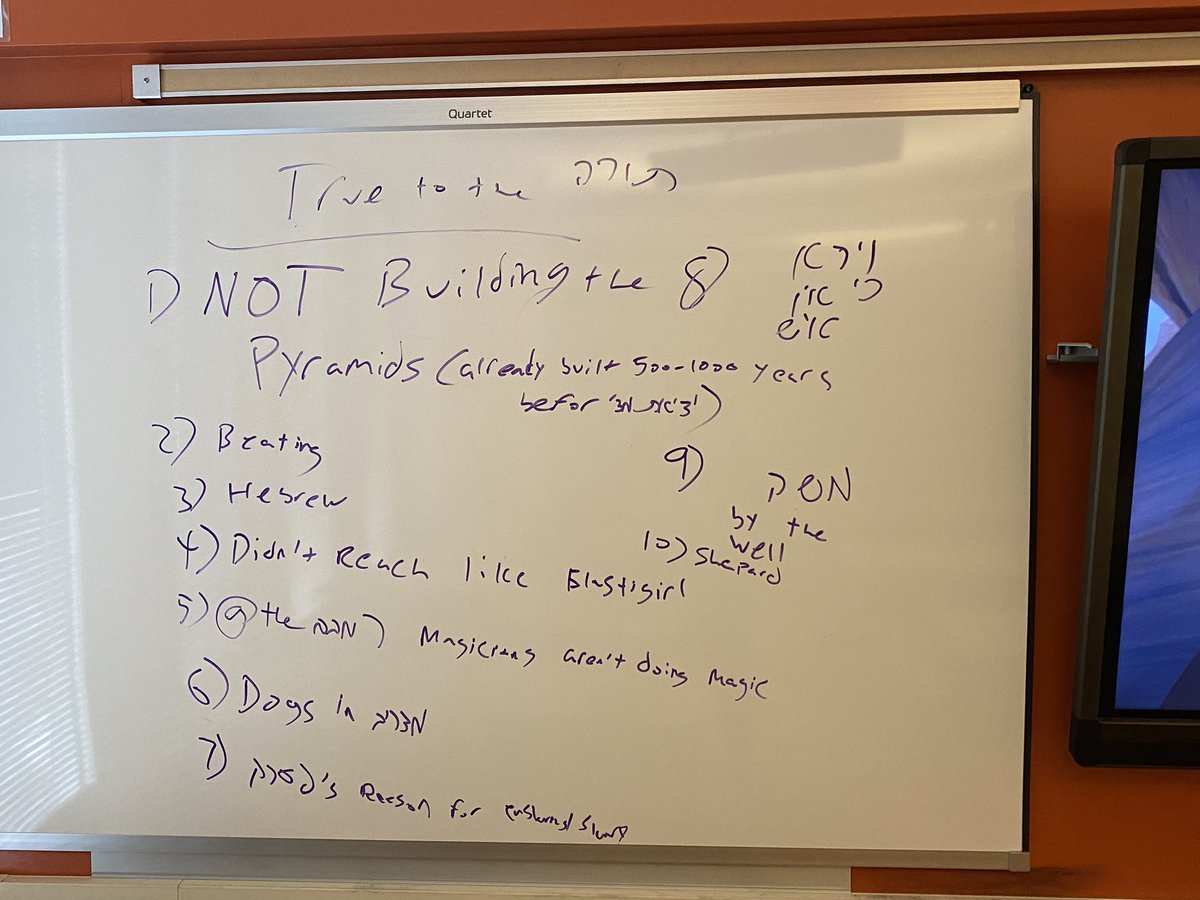 Quartet
True to the תורה
1) NOT Building the
Pyramids (already built 500-1000 years
befor יציאת מצ')
2) Beating
3) Hebrew
4) Didn't Reach like Elastigirl
5) @ the Magicians aren't doing Magic
6) Dogs in
7) פרעה's Reason for
8) וירא
כי אין
איש
9) משה
by the
well
10) Shepard